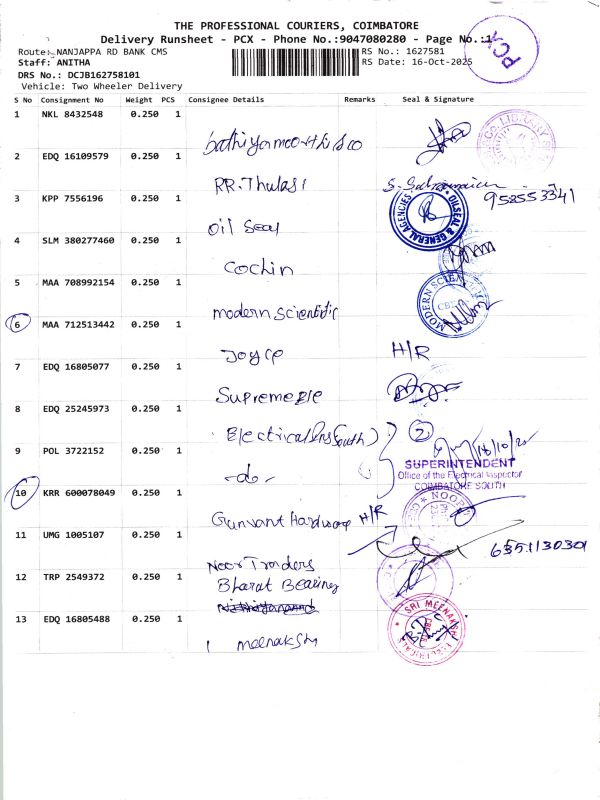 THE PROFESSIONAL COURIERS, COIMBATORE
Delivery Runsheet - PCX - Phone No.:9047080280 - Page No.:1
PCX
Route: NANJAPPA RD BANK CMS
RS No.: 1627581
Staff: ANITHA
RS Date: 16-Oct-2025
DRS No.: DCJB162758101
Vehicle: Two Wheeler Delivery
S No Consignment No Weight PCS Consignee Details Remarks Seal & Signature
1 NKL 8432548 0.250 1
2 EDQ 16109579 0.250 1
RR.Thulasi
3 KPP 7556196 0.250 1
958553341
Oil Seal
OILSEAL & GENERAL AGENCIES
4 SLM 380277460 0.250 1
Cochin
5 MAA 708992154 0.250 1
modern Scientific
MODERN SCIEN
6 MAA 712513442 0.250 1
Joyce H/R
7 EDQ 16805077 0.250 1
Supreme Ele
8 EDQ 25245973 0.250 1
Electrical Ins (South) 2
9 POL 3722152 0.250 1
-do-
SUPERINTENDENT
Office of the Electrical Inspector
COIMBATORE SOUTH
10 KRR 600078049 0.250 1
Gunvant Hardware H/R
NOOR
11 UMG 1005107 0.250 1
6351130301
Noor Traders
12 TRP 2549372 0.250 1
Bharat Bearing
13 EDQ 16805488 0.250 1
SRI MEENAKSHI ELECTRICALS
meenakshi